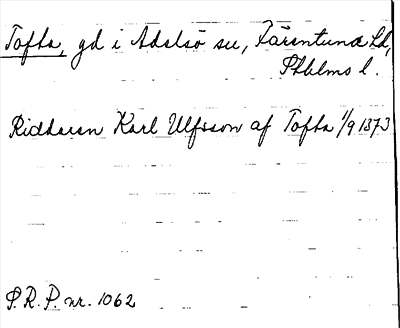 Tofta, gd i Adelsö sn, Färentuna hd,
Sthlms l.
Riddaren Karl Ulfsson af Tofta 1/9 1373
S.R.P. nr. 1062